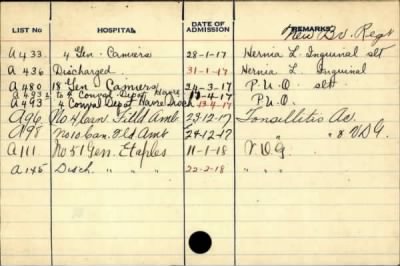 LIST NO. HOSPITAL DATE OF ADMISSION REMARKS
New Bv. Regt
A433. 4 Gen. Camiers 28-1-17 Hernia L. Inguinal slt
A 436 Discharged. 31-1-17 Hernia L. Inguinal
A 480 18 Gen Camiers 24-3-17 P.U.O slt
A493½ to 4 Conval Depot Havre 12-4-17
A493 4 Conval Depot Havre Disch 13.4.17 P.U.O.
A96 No 4 Can. Field Amb. 23.12.17 Tonsillitis Ac.
A98 No 10 Can. Fld Amb 24-12-17 " & VDG.
A111 No 51 Gen. Etaples 11-1-18 V.D.G
A145 Disch. " " 22-2-18 " " "